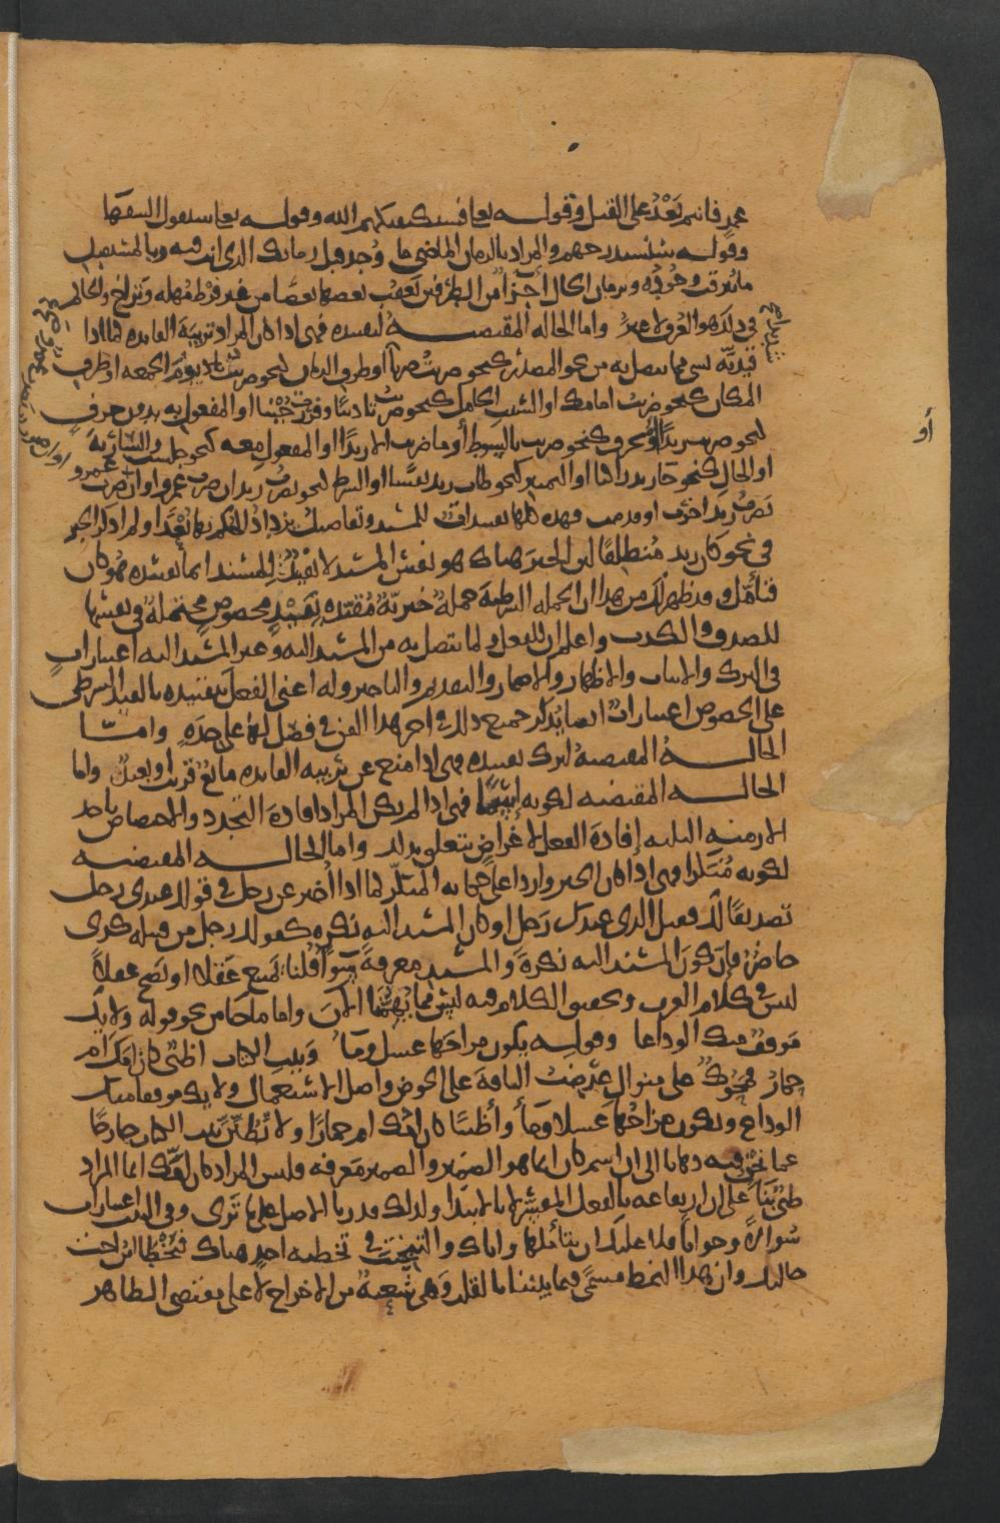 عمر فانهم بعد على القتل وقوله تعالى فسيكفيكهم الله وقوله تعالى سيقول السفها
وقوله سنستدرجهم والمراد بالزمان الماضي ما وجد قبل زمانك الذي انت فيه وبالمستقبل
ما يترقب وجوده وبزمان الحال اجزا من الطرفين يعقب بعضها بعضا من غير فرط مهله وتراخ والحاكم
في ذلك هو العرف لا غير واما الحاله المقتضيه لتقييده فهي اذا كان المراد تربية الفايده كما اذا
قيدته بشي مما يتصل به من نحو المصدر كنحو ضربت ضربا او ظرف الزمان كنحو ضربت يوم الجمعه او ظرف
المكان كنحو ضربت امامك او السبب الحامل كنحو ضربت تاديبا وفررت جبنا او المفعول به بدون حرف
كنحو ضربت زيدا او بحرف كنحو ضربت بالسوط أو ما ضربت الا زيدا او المفعول معه كنحو جلست والسارية
او الحال كنحو جا زيد راكبا او التمييز كنحو طاب زيد نفسا او الشرط كنحو يضرب زيد ان ضرب عمرو او ان ضرب عمرو
يضرب زيد اخرت او قدمت فهذه كلها تقييدات للمسند وتفاصيل يزداد الحكم بها بعدا ولم اذكر الخبر
في نحو كان زيد منطلقا لان الخبر هناك هو نفس المسند لا تقييد للمسند انما تقييده هو كان
فتأمل وقد ظهر لك من هذا ان الجمله الشرطية جملة خبرية مقيده بقيد مخصوص محتملة في نفسها
للصدق والكذب واعلم ان للفعل ولما يتصل به من المسند اليه وغير المسند اليه اعتبارات
في الترك والاثبات والاظهار والاضمار والتقديم والتاخير وله اعني الفعل بتقييده بالقيد الشرطي
على الخصوص اعتبارات ايضا يذكر جميع ذلك في اخر هذا الفن في فصل لها على حده وامّا
الحالة المقتضية لترك تقييده فهي اذا منع عن تربيه الفايده مانع قريب او بعيد واما
الحاله المقتضيه لكونه اسما فهي اذا لم يكن المراد افادة التجدد والاختصاص باحد
الازمنه الثلثه افادة الفعل لاغراض تتعلق بذلك واما الحاله المقتضيه
لكونه منكرا فهي اذا كان الخبر واردا على حكايه المنكر كما اذا أخبر عن رجل في قولك عندي رجل
تصديقا لك فقيل الذي عندك رجل او كان المسند اليه نكره كقولك رجل من قبيله كذى
حاضر فإن كون المسند اليه نكرة والمسند معرفة سوآ قلنا يمتنع عقلا او يصح عقلاً
ليس في كلام العرب وتحقيق الكلام فيه ليس مما يهمنا الآن واما ما جا من نحو قوله ولا يك
موقف منك الوداعا وقوله يكون مزاجها عسل وما وبيت الكتاب اظبي كان امك ام
حمار فمحمول على منوال عرضت الناقة على الحوض واصل الاستعمال ولا يك موقفا منك
الوداع ويكون مزاجها عسلا وما وأظبيا كان امك ام حمارا ولا تظنن بيت الكتاب خارجا
عما نحن فيه ذهابا الى ان اسم كان انما هو الضمير والضمير معرفه فليس المراد كان امك انما المراد
ظبي بنا على ان ارتفاعه بالفعل المفسر لا بالابتدا ولذلك قدرنا الاصل على ما ترى وفي البيت اعتبارات
سوالا وجوابا فلا عليك ان تتأملها واياك والتبخيت في تخطيه احد هناك فتخطا ابن اخت
خالتك وان هذا النمط مسمى فيما بيننا بالقلب وهي شعبة من الاخراج لا على مقتضى الظاهر
أو